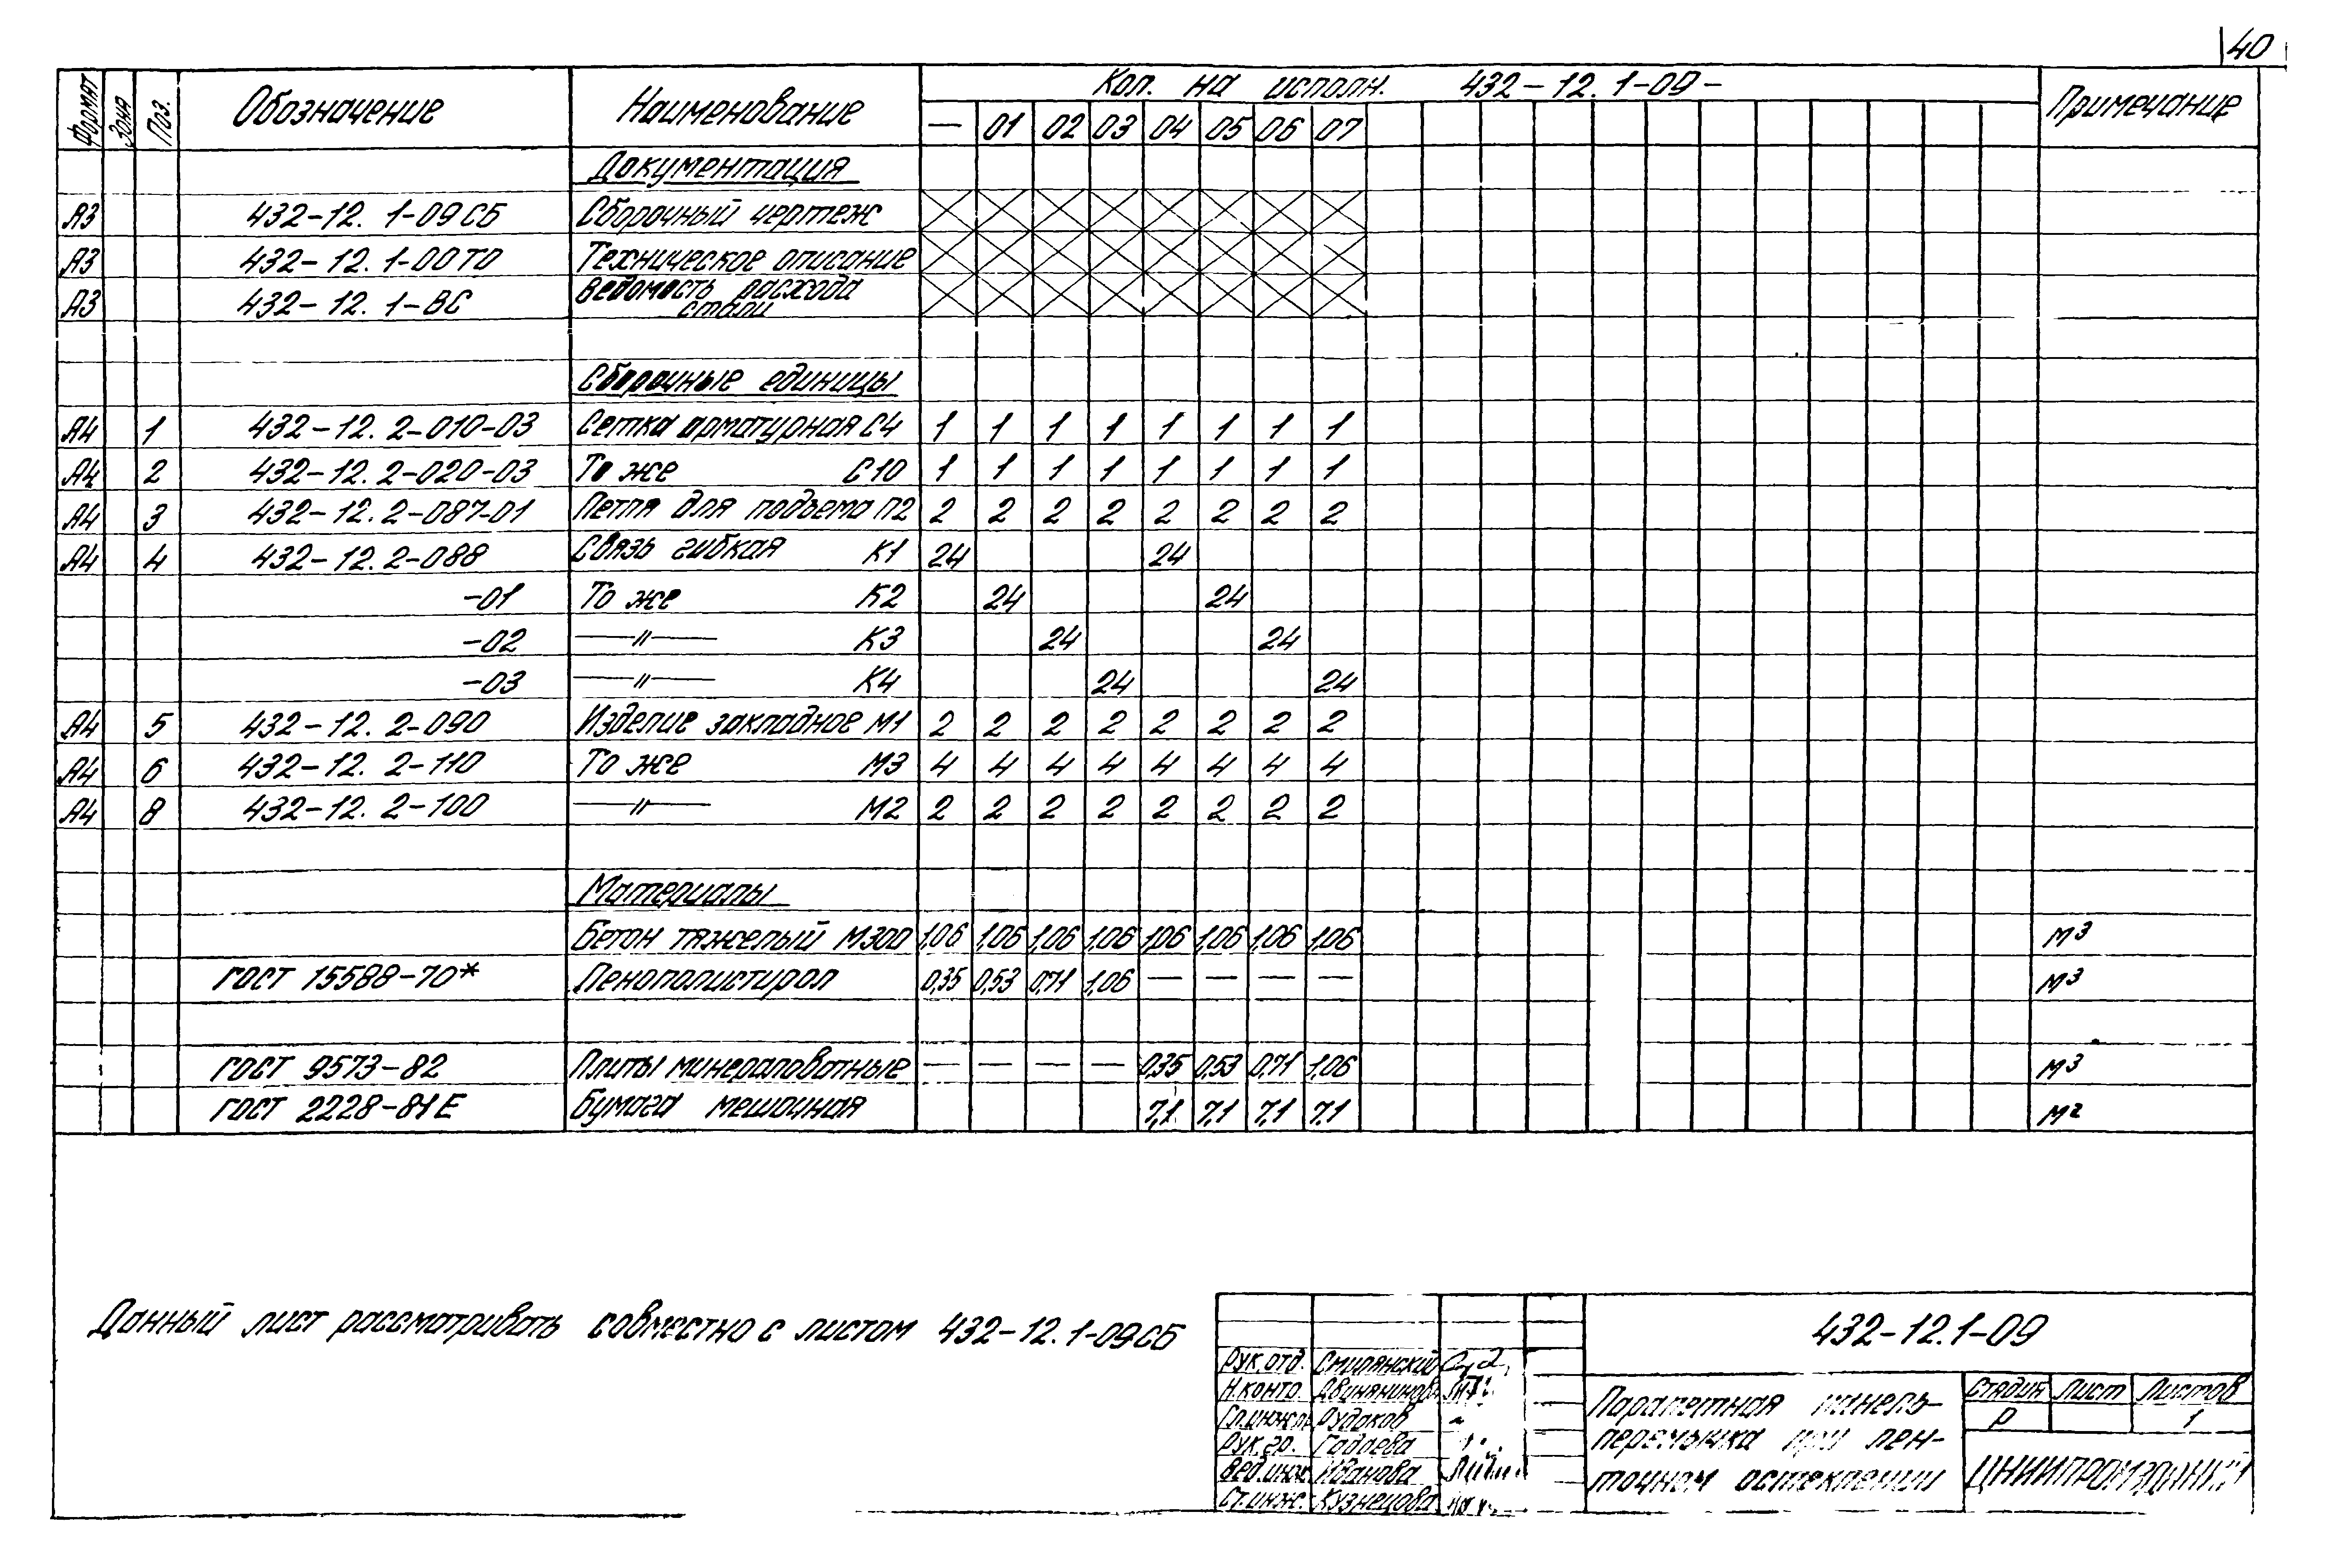 40
Формат Зона Поз. Обозначение Наименование Кол. на исполн. 432-12.1-09- Примечание
— 01 02 03 04 05 06 07
Документация
А3 432-12.1-09СБ Сборочный чертеж
А3 432-12.1-00ТО Техническое описание
А3 432-12.1-ВС Ведомость расхода
стали
Сборочные единицы
А4 1 432-12.2-010-03 Сетка арматурная С4 1 1 1 1 1 1 1 1
А4 2 432-12.2-020-03 То же С10 1 1 1 1 1 1 1 1
А4 3 432-12.2-087-01 Петля для подъема П2 2 2 2 2 2 2 2 2
А4 4 432-12.2-088 Связь гибкая К1 24 24
-01 То же К2 24 24
-02 —〃— К3 24 24
-03 —〃— К4 24 24
А4 5 432-12.2-090 Изделие закладное М1 2 2 2 2 2 2 2 2
А4 6 432-12.2-110 То же М3 4 4 4 4 4 4 4 4
А4 8 432-12.2-100 —〃— М2 2 2 2 2 2 2 2 2
Материалы
Бетон тяжелый М300 1,06 1,06 1,06 1,06 1,06 1,06 1,06 1,06 м³
ГОСТ 15588-70* Пенополистирол 0,35 0,53 0,71 1,06 — — — — м³
ГОСТ 9573-82 Плиты минераловатные — — — — 0,35 0,53 0,71 1,06 м³
ГОСТ 2228-81Е Бумага мешочная 7,1 7,1 7,1 7,1 м²
Данный лист рассматривать совместно с листом 432-12.1-09СБ
432-12.1-09
Рук.отд. Смилянский
Н.контр. Двинянинова
Гл.инж.пр. Рудаков
Рук.гр. Годлева
Вед.инж. Иванова
Ст.инж. Кузнецова
Парапетная панель-
перемычка при лен-
точном остеклении
Стадия Лист Листов
Р 1
ЦНИИПРОМЗДАНИЙ